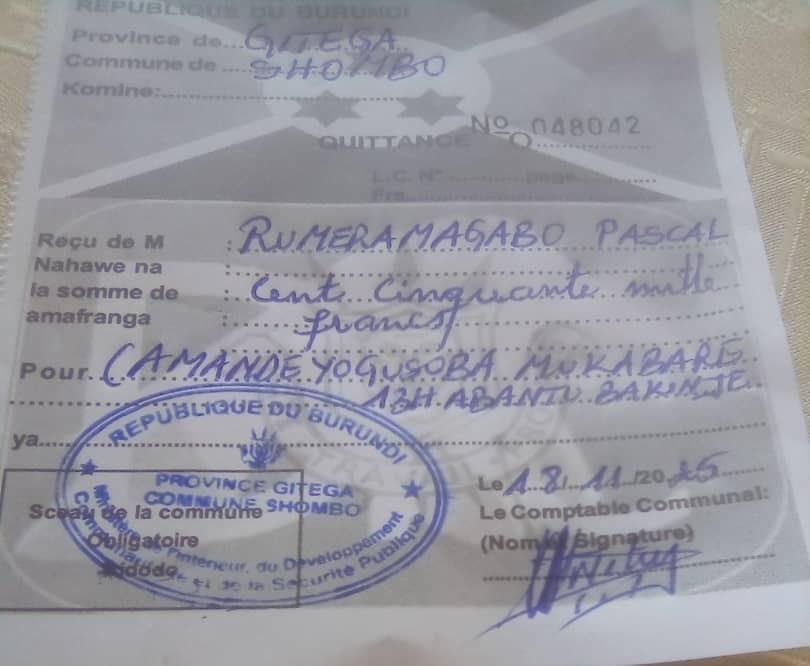 REPUBLIQUE DU BURUNDI
Province de...GITEGA
Commune de ....SHOMBO
Komine:
No 048042
QUITTANCE O
L.C. N° page
Frs
Reçu de M : RUMERAMAGABO PASCAL
Nahawe na :
la somme de : Cent Cinquante mille
amafranga : francs
Pour. (AMANDE YOGUSOBA MUKABARE
13H ABANTU
ya
REPUBLIQUE DU BURUNDI
PROVINCE GITEGA
COMMUNE SHOMBO
Ministère de l'Intérieur, du Développement
Communautaire et de la Sécurité Publique
Sceau de la commune
Obligatoire
Le 18/11/2025
Le Comptable Communal:
(Nom & Signature)